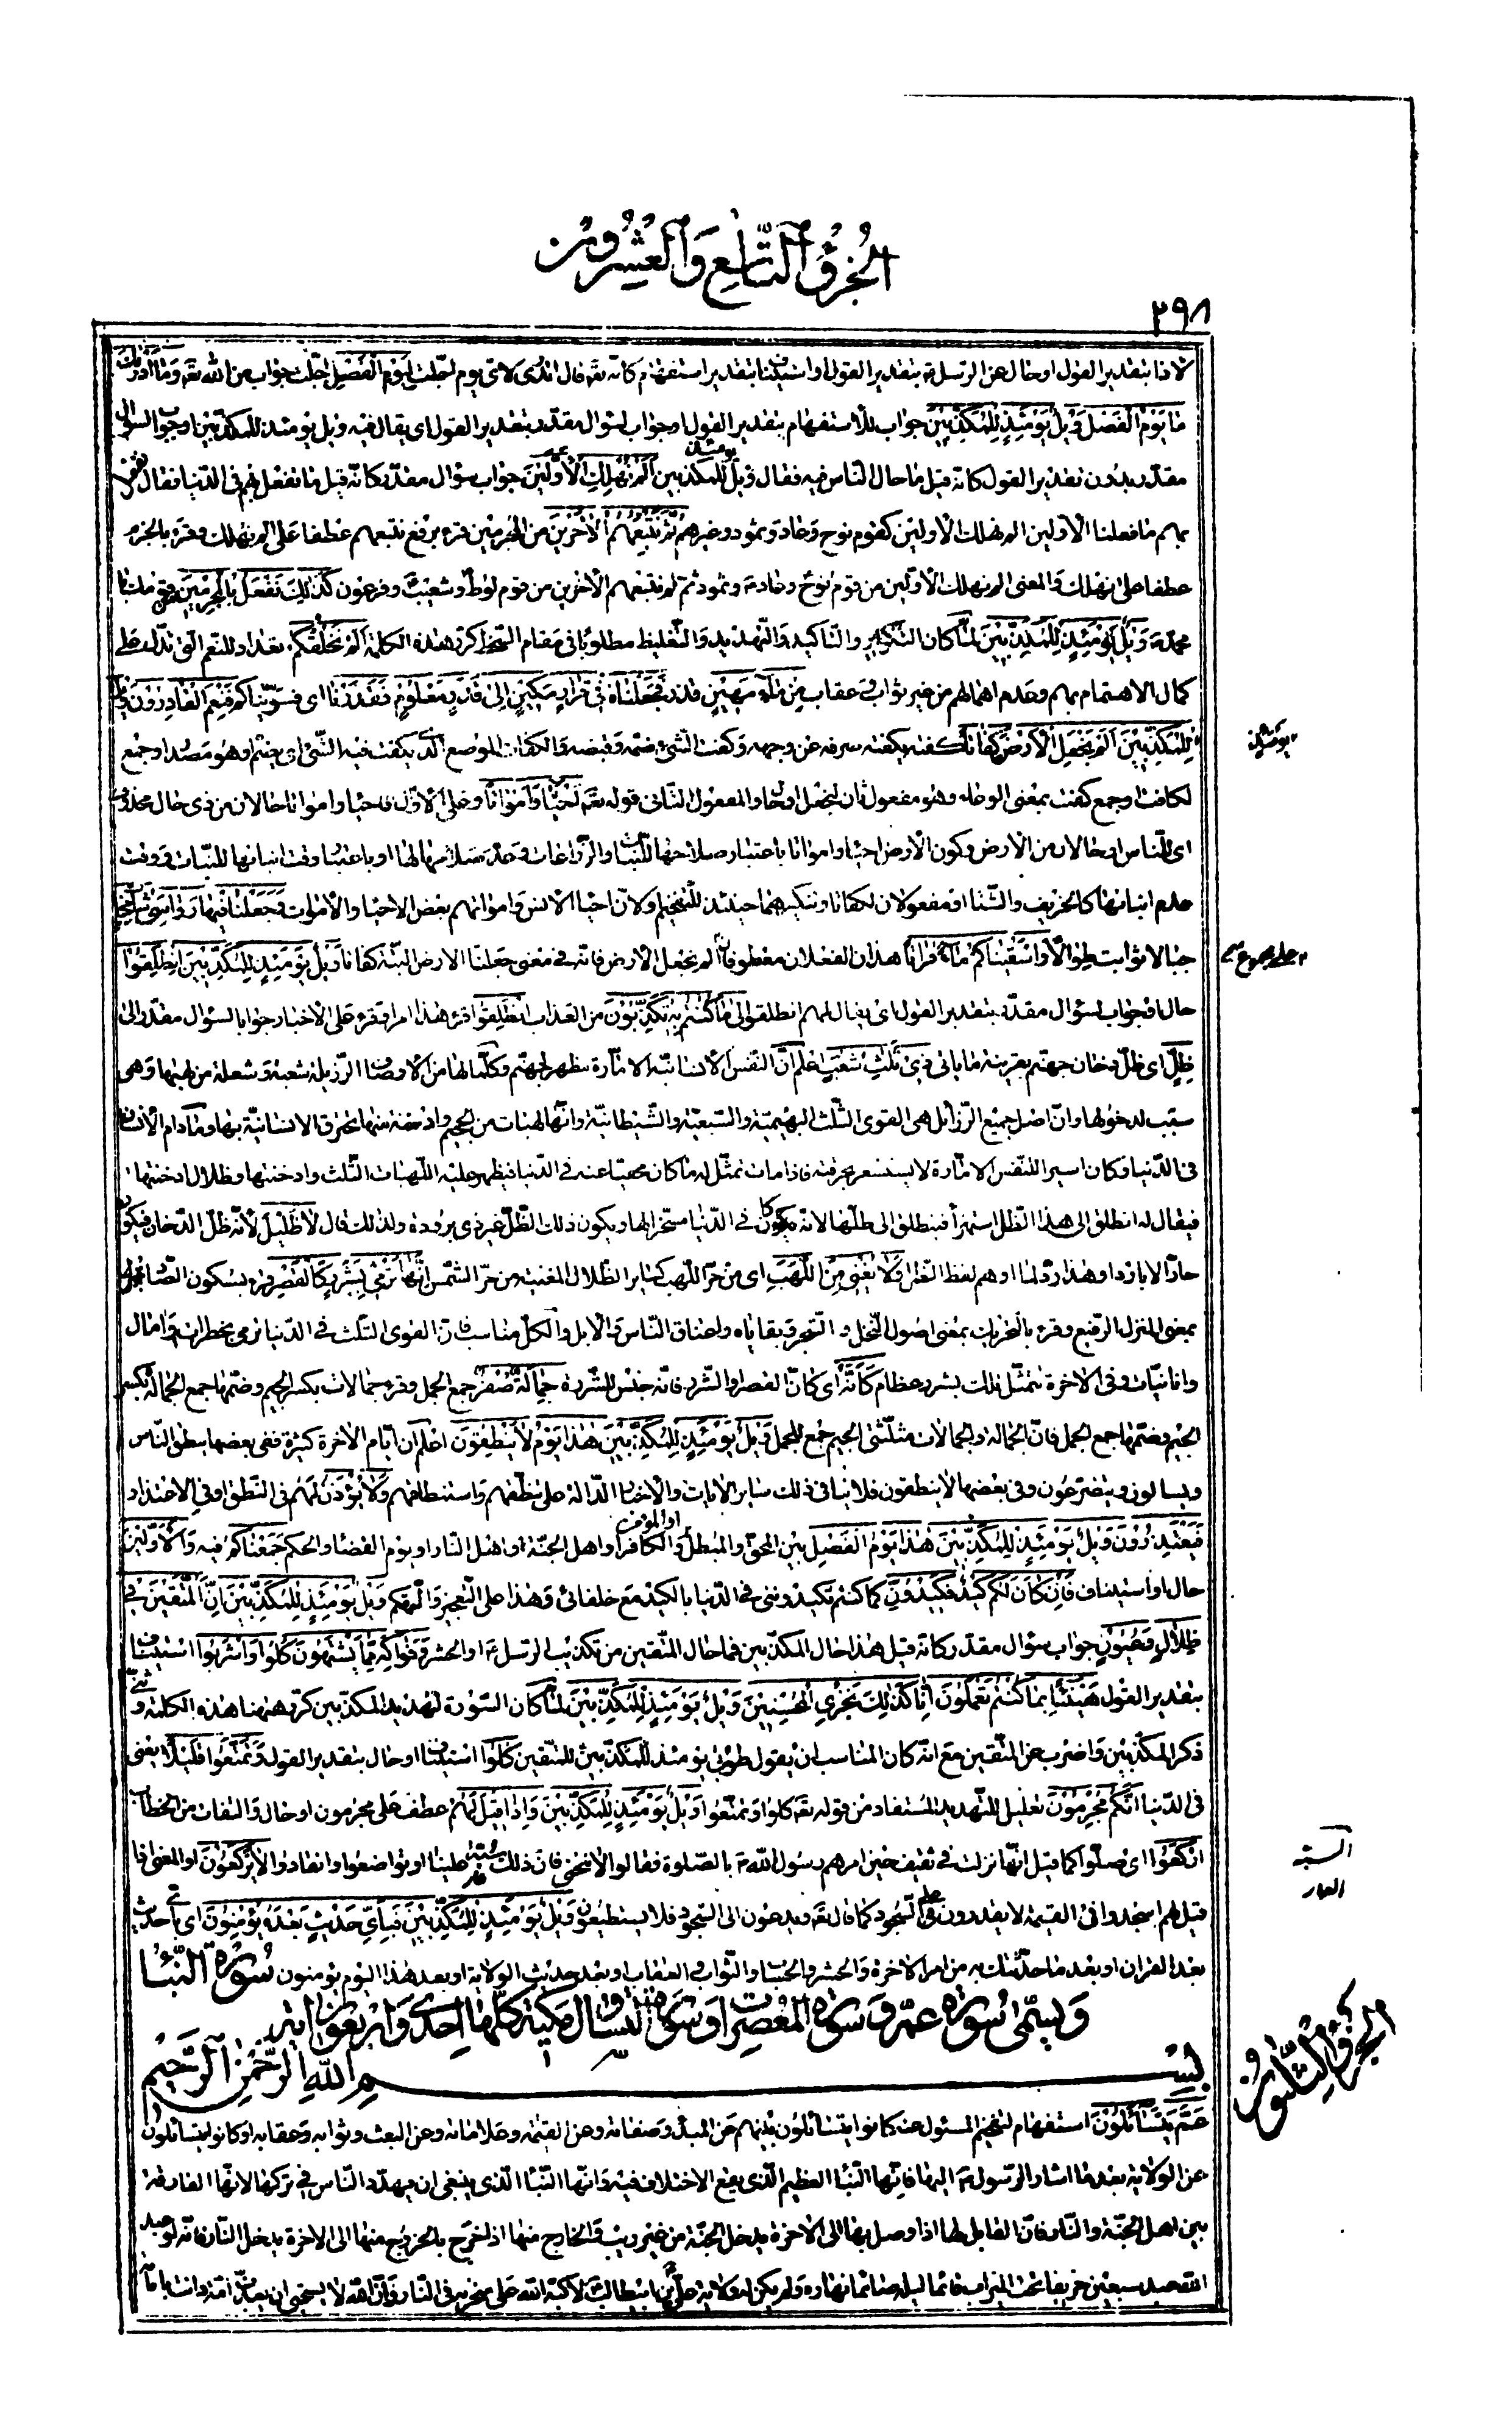 الجزؤ التاسع والعشرون
٢٩٨
لاذا بتقدير القول او حال عن الرسل بتقدير القول او استيناف بتقدير استفهام كانّه تعه قال اتدرى لاىّ يوم اجّلت ليوم الفصل اجّلت جواب من الله تعه وما ادراك
ما يوم الفصل ويل يومئذ للمكذّبين جواب للاستفهام بتقدير القول او جواب لسؤال مقدّر بتقدير القول اى يقال فيه ويل يومئذ للمكذّبين او جواب لسؤال
مقدّر بدون تقدير القول كانّه قيل ما حال الناس فيه فقال ويل يومئذ للمكذبين الم نهلك الاوّلين جواب سؤال مقدّر كانّه قيل ما تفعل بهم فى الدّنيا فقال نفعل
بهم ما فعلنا الاولين الم نهلك الاولين كقوم نوح وعاد وثمود وغيرهم ثمّ نتبعهم الاخرين من المجرمين قرء برفع نتبعهم عطفا على الم نهلك وقرء بالجزم
عطفا على نهلك والمعنى الم نهلك الاوّلين من قوم نوح وعاد وثمود ثمّ لم نتبعهم الاخرين من قوم لوط وشعيب وفرعون كذلك نفعل بالمجرمين
محمد ويل يومئذ للمكذّبين لمّا كان التكرير والتاكيد والتهديد والتغليظ مطلوبا فى مقام السّخط كرّر هذه الكلمة الم نخلقكم تعداد للنّعم الّتى تدلّ على
كمال الاهتمام بهم وعدم اهمالهم من غير ثواب وعقاب من مآء مهين قذر فجعلناه فى قرار مكين الى قدر معلوم فقدرنا اى فسوّيناكم فنعم القادرون ويل
يومئذ
للمكذّبين الم نجعل الارض كفاتا كفته يكفته صرفه عن وجهه وكفت الشّىء ضمّه وقبضه والكفات الموضع الّذى يكفت فيه الشّىء اى يضمّ وهو مصدر او جمع
لكافت او جمع كفت بمعنى الوعاء وهو مفعول ثان لنجعل او حال والمفعول الثّانى قوله تعه احياء وامواتا وعلى الاوّل فاحياء وامواتا حالان من ذى حال محذوف
اى للنّاس او حالان من الارض وكون الارض احياء وامواتا باعتبار صلاحها للنبات والزّراعات وعدم صلاحها لها او باعتبار وقت انباتها للنّبات ووقت
عدم انباتها كالخريف والشّتا او مفعولان لكفاتا وتنكيرهما حينئذ للتفخيم او لانّ احياء الانس وامواتهم بعض الاحياء والاموات وجعلنا فيها رواسى شامخات
جبالا ثوابت طوالا واسقيناكم مآء فراتا هذان الفعلان معطوفان على مجموع الم نجعل الارض فانّه فى معنى جعلنا الارض البتّة كفاتا ويل يومئذ للمكذّبين انطلقوا
حال او جواب لسؤال مقدّر بتقدير القول اى يقال لهم انطلقوا الى ما كنتم به تكذّبون من العذاب انطلقوا قرء هذا امرا وقرء على الاخبار جوابا لسؤال مقدّر الى
ظلّ اى ظلّ دخان جهنّم بقرينة ما ياتى ذى ثلث شعب اعلم انّ النّفس الانسانيّة الامّارة مظهر لجهنّم وكلّما لها من الاوصاف الرّذيلة شعبة وشعلة من لهبها وهى
سبب لدخولها وانّ اصل جميع الرّذائل هى القوى الثّلث البهيميّة والسّبعيّة والشّيطانيّة وانّها لهبات من الجحيم وادخنة منها تحرق الانسانيّة بها وما دام الانسان
فى الدّنيا وكان اسيرا للنّفس الامّارة لا يستشعر بحرقته فاذا مات تمثّل له ما كان مختفيا عنه فى الدّنيا فيظهر عليه اللّهبات الثّلث وادخنتها وظلال ادخنتها
فيقال له انطلق الى هذا الظل استهزأ فينطلق الى ظلّها لانّه كان فى الدّنيا مسخّرا لها ويكون ذلك الظّلّ غير ذى برودة ولذلك قال لا ظليل لانّه ظلّ الدّخان فيكون
حارّا لا باردا وهذا ردّ لما اوهم لفظ الظلّ ولا يغنى من اللّهب اى من حرّ اللّهب كساير الظّلال المغنية من حرّ الشّمس انّها ترمى بشرر كالقصر قرء بسكون الصّاد
بمعنى المنزل الرّفيع وقرء بالتحريك بمعنى اصول النّخل والشّجر وبقاياه واعناق النّاس والابل والكلّ مناسب فانّ القوى الثّلث فى الدّنيا ترمى بخطرات وامال
وانانيّات وفى الاخرة تتمثّل تلك بشرر عظام كانّه اى كانّ القصر او الشّرر فانّه جنس للشّررة جمالة صفر جمع الجمل وقرء جمالات بكسر الجيم وضمّها جمع الجمالة بكسر
الجيم وضمّها جمع الجمل فانّ الجمالة والجمالات مثلّثتى الجيم جمع للجمل ويل يومئذ للمكذّبين هذا يوم لا ينطقون اعلم ان ايّام الاخرة كثيرة ففى بعضها ينطق النّاس
ويسالون ويتضرّعون وفى بعضها لا ينطقون فلا ينافى ذلك ساير الايات والاخبار الدّالة على نطقهم واستنطاقهم ولا يؤذن لهم فى النّطق او فى الاعتذار
فيعتذرون ويل يومئذ للمكذّبين هذا يوم الفصل بين المحق والمبطل او المؤمن والكافر او اهل الجنّة واهل النّار او يوم القضاء والحكم جمعناكم فيه والاوّلين
حال او استيناف فان كان لكم كيد فكيدون كما كنتم تكيدوننى فى الدّنيا بالكيد مع خلفائى وهذا على التّعجيز والتّهكّم ويل يومئذ للمكذّبين انّ المتّقين فى
ظلال وعيون جواب سؤال مقدّر كانّه قيل هذا حال المكذّبين فما حال المتّقين من تكذيب الرّسل او الحشر وفواكه ممّا يشتهون كلوا واشربوا استيناف
بتقدير القول هنيئا بما كنتم تعملون انّا كذلك نجزى المحسنين ويل يومئذ للمكذّبين لمّا كان السّورة لتهديد المكذّبين كرّر هيهنا هذه الكلمة
ذكر المكذّبين واضرب عن المتّقين مع انّه كان المناسب ان يقول طوبى يومئذ للمتّقين كلوا استيناف او حال بتقدير القول وتمتّعوا قليلا يعنى
فى الدّنيا انّكم مجرمون تعليل للتّهديد المستفاد من قوله تعه كلوا وتمتّعوا ويل يومئذ للمكذّبين واذا قيل لهم عطف على مجرمون او حال والتفات من الخطاب
اركعوا اى صلّوا كما قيل انّها نزلت فى ثقيف حين امرهم رسول الله بالصّلوة فقالوا لا ننحنى فانّ ذلك سبّة علينا او تواضعوا وانقادوا لا يركعون او المعنى اذا
السبة
العار
قيل لهم اسجدوا فى القيمة لا يقدرون على السّجود كما قال تعه ويدعون الى السّجود فلا يستطيعون ويل يومئذ للمكذّبين فباىّ حديث بعده يؤمنون اى باىّ حديث
بعد القران او بعد ما حدّثتك به من امر الاخرة والحشر والحساب والثّواب والعقاب او بعد حديث الولاية او بعد هذا اليوم يؤمنون سورة النّبأ
وتسمّى سورة عمّ وسورة المعصرات او سورة التساؤل مكية كلّها احدى واربعون اية
الجزؤ الثلثون
بسم الله الرّحمن الرّحيم
عمّ يتسائلون استفهام لتفخيم المسئول عنه كانوا يتسائلون بينهم عن المبدء وصفاته وعن القيمة وعلاماته وعن البعث وثوابه وعقابه او كانوا يتسائلون
عن الولاية بعد ما اشار الرّسول اليها فانّها النّبأ العظيم الّذى يقع الاختلاف فيه وانّها النّبأ الّذى ينبغى ان يهدّد النّاس فى تركها لانّها الفارقة
بين اهل الجنّة والنّار فانّ القابل لها اذا وصل بها الى الاخرة يدخل الجنّة من غير ريب والخارج منها اذا خرج بالخروج منها الى الاخرة يدخل النّار فانّه لو عبد
الله عبد سبعين خريفا تحت الميزاب قائما ليله صائما نهاره ولم يكن له ولاية علىّ بن ابيطالب لاكبّه الله على منخريه فى النّار وانّ الله لا يستحيى ان يعذّب امّة دانت بامام